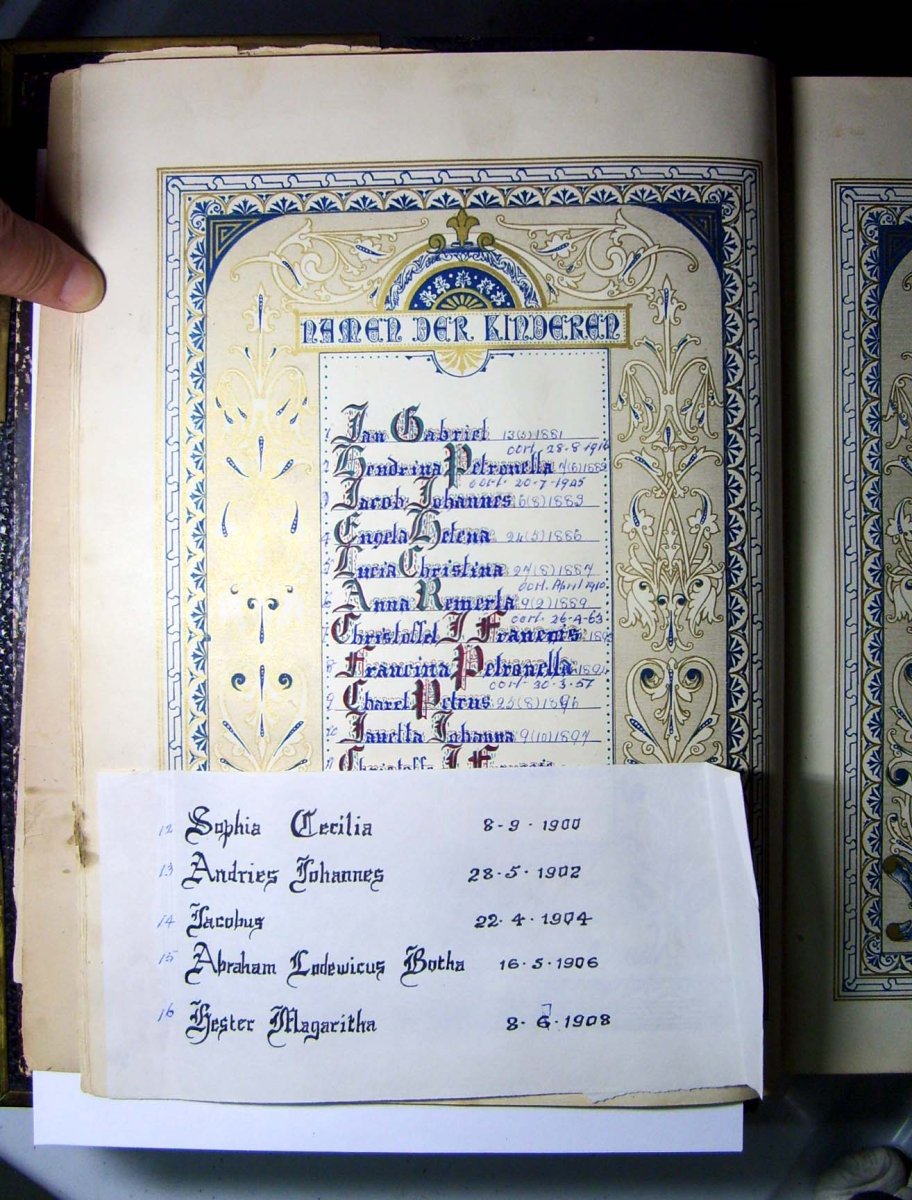 NAMEN DER KINDEREN
1 Jan Gabriel 13(6)1881
oorl. 28-8-1916
2 Hendrina Petronella
oorl. 20-7-1925
3 Jacob Johannes 6(8)1883
4 Engela Helena
5 Lucia Christina
oorl. April 1910
Anna Remerta 9(2)1889
oorl. 26-4-63
Christoffel J Francois
8 Francina Petronella
oorl. 30-3-57
9 Charel Petrus
10 Janetta Johanna 9(10)1897
12 Sophia Cecilia 8-9-1900
13 Andries Johannes 28-5-1902
14 Jacobus 22.4.1904
15 Abraham Lodewicus Botha 16.5.1906
16 Hester Magaritha 8. 6.1908